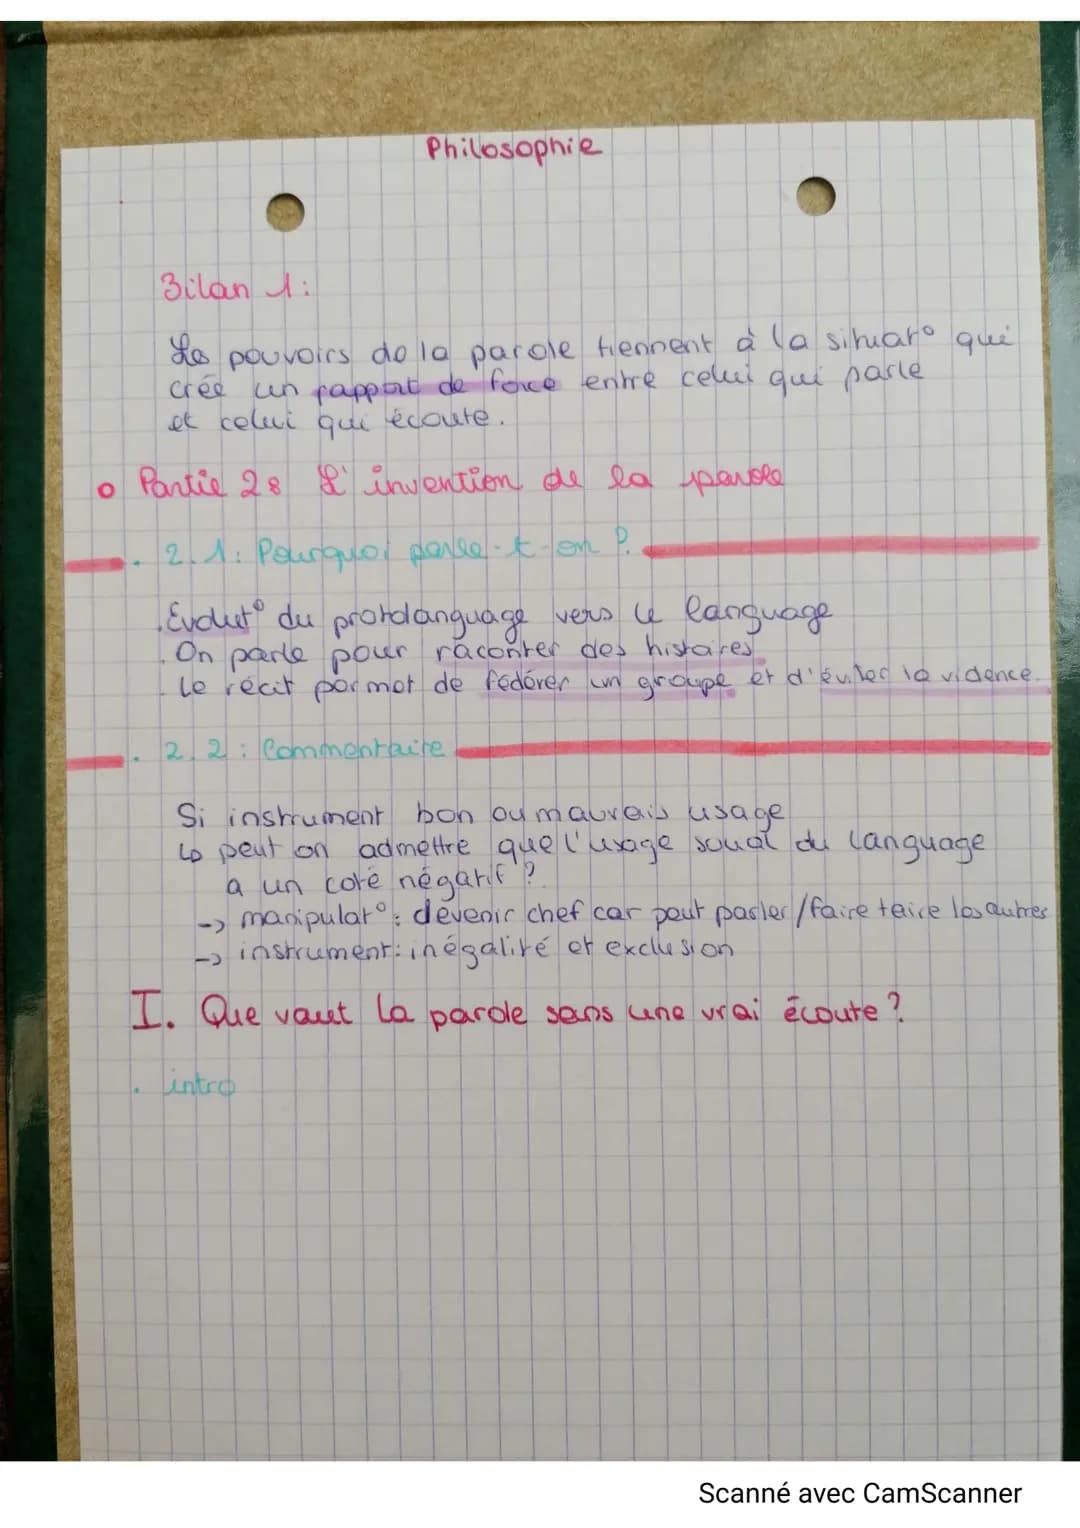 Philosophie
Bilan 1:
Les pouvoirs de la parole tiennent à la situat° qui
crée un rapport de force entre celui qui parle
et celui qui écoute.
o Partie 2: L'invention de la parole
. 2.1: Pourquoi parle-t-on ?
. Évolut° du protolanguage vers le language
. On parle pour raconter des histoires
. Le récit permet de fédérer un groupe et d'éviter la violence.
. 2.2: Commentaire
Si instrument bon ou mauvais usage
↳ peut on admettre que l'usage social du language
a un coté négatif ?
-> manipulat°: devenir chef car peut parler/faire taire les autres
-> instrument: inégalité et exclusion
I. Que vaut la parole sans une vrai écoute ?
. intro
Scanné avec CamScanner